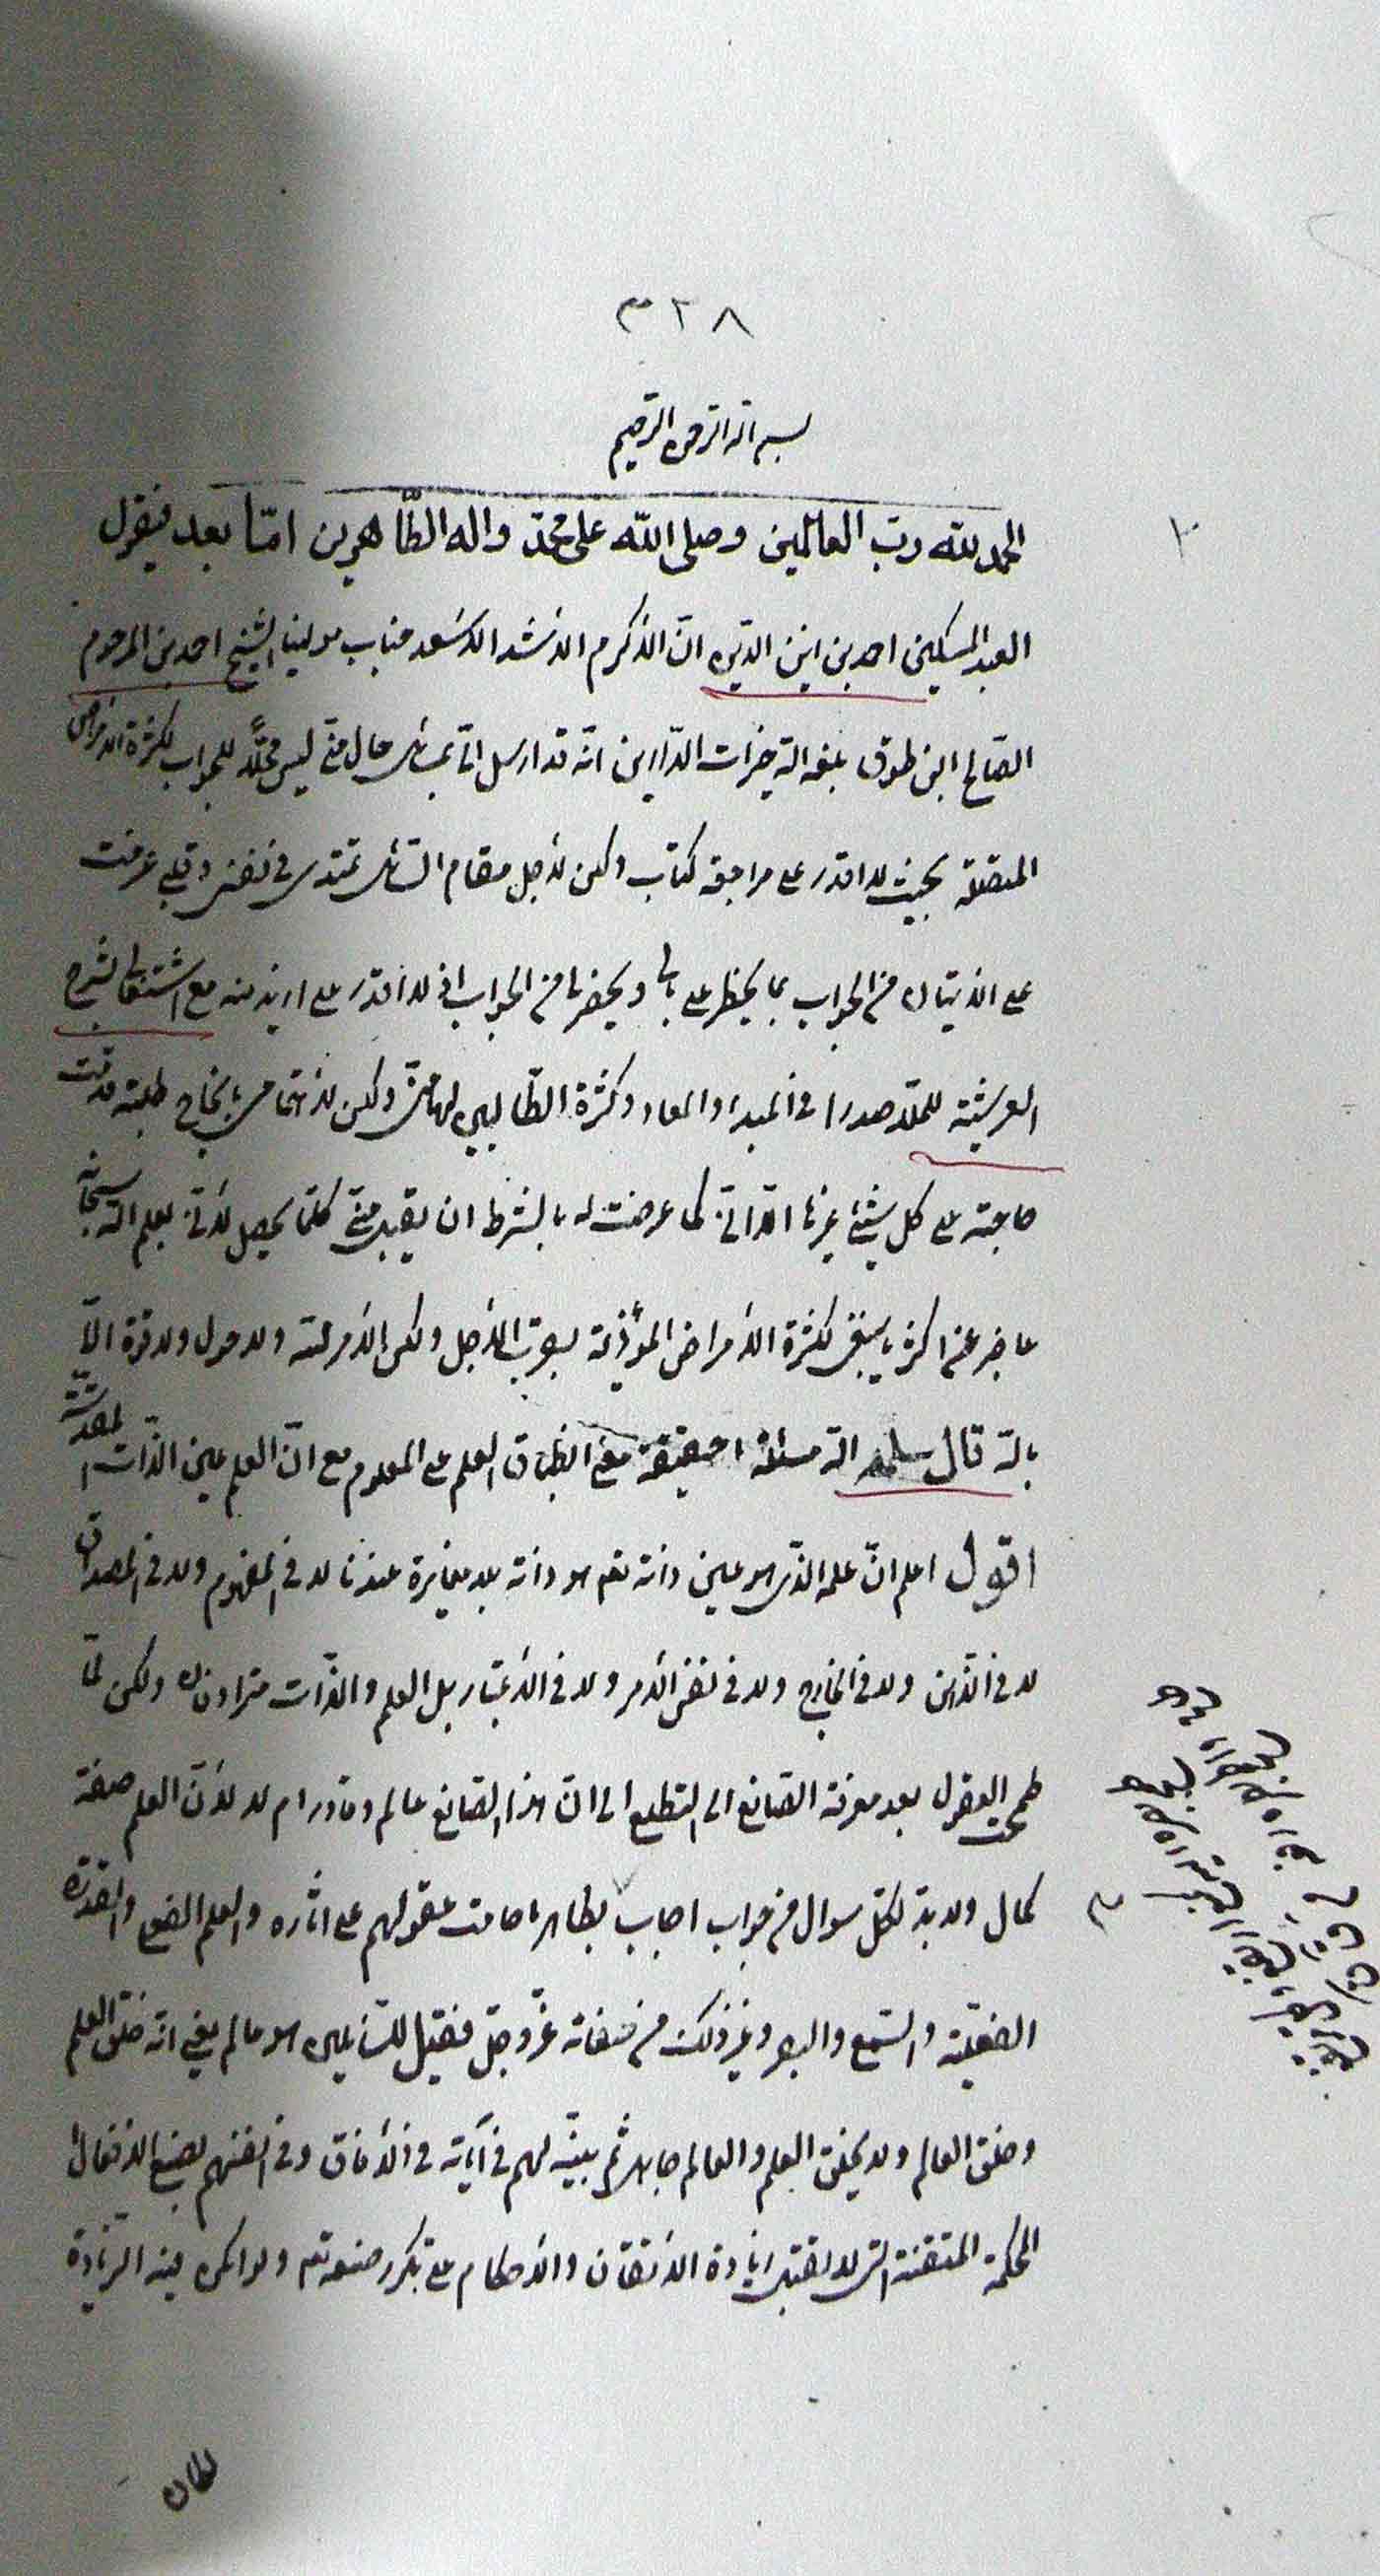 ٣٢٨
بسم الله الرحمن الرحيم
الحمد لله رب العالمين وصلى الله على محمد واله الطّاهرين امّا بعد فيقول
العبد المسكين احمد بن زين الدين انّ الاكرم الارشد الاسعد جناب مولينا الشيخ احمد بن المرحوم
الصالح ابن طوق بلغه الله خيرات الدارين انه قد ارسل اليّ بمسائل حال منى ليس محلّاً للجواب لكثرة الامراض
المتصلة بحيث لا اقدر على مراجعة كتاب ولكن لاجل مقام السائل عندى فى نفسى وقلبى عزمت
على الاتيان من الجواب بما يخطر على بالى ويحضرنا من الجواب اذ لا اقدر على ازيد منه مع اشتغالى بشرح
العرشية للملا صدرا فى المبدا والمعاد وكثرة الطالبين لها منى ولكن لاهتمامى بانجاح طلبته قدمت
حاجته على كل شيئ غيرها الا انى كما عرضت له بالشرط ان يقبل منى كلما يحصل لانى يعلم الله سبحانه
عاجز عن اكثر ما ينبغى لكثرة الامراض المؤذنة بقرب الاجل ولكن الامر لله ولا حول ولا قوة الّا
بالله قال سلمه الله مسئلة ما حقيقة معنى انطباق العلم على المعلوم مع انّ العلم عين الذات المقدسة
اقول اعلم انّ علمه الذى هو عين ذاته نعم هو ذاته بلا مغايرة عندنا لا فى المفهوم ولا فى المصداق
لا فى الذهن ولا فى الخارج ولا فى نفس الامر ولا فى الاعتبار بل العلم والذات مترادفان ولكن لمّا
طمحت العقول بعد معرفة الصانع الى التطلع الى انّ هذا الصانع عالم وقادر ام لا لانّ العلم صفة
كمال ولا بد لكل سوال من جواب اجاب بظاهر ما حامت عقولهم على اثاره والعلم الفعلى والقدرة
الفعلية والسمع والبصر وغير ذلك من صفاته عزّ وجلّ فقيل للسائلين هو عالم يعنى انه خلق العلم
وخلق العالم ولا يخلق العلم والعالم جاهل ثم بيّنه لهم فى آياته فى الآفاق وفى انفسهم بصنع الافعال
المحكمة المتقنة التى لا تقبل زيادة الاتقان والاحكام على تكرر صنعه تعم ولو امكن فيه الزيادة
لكان